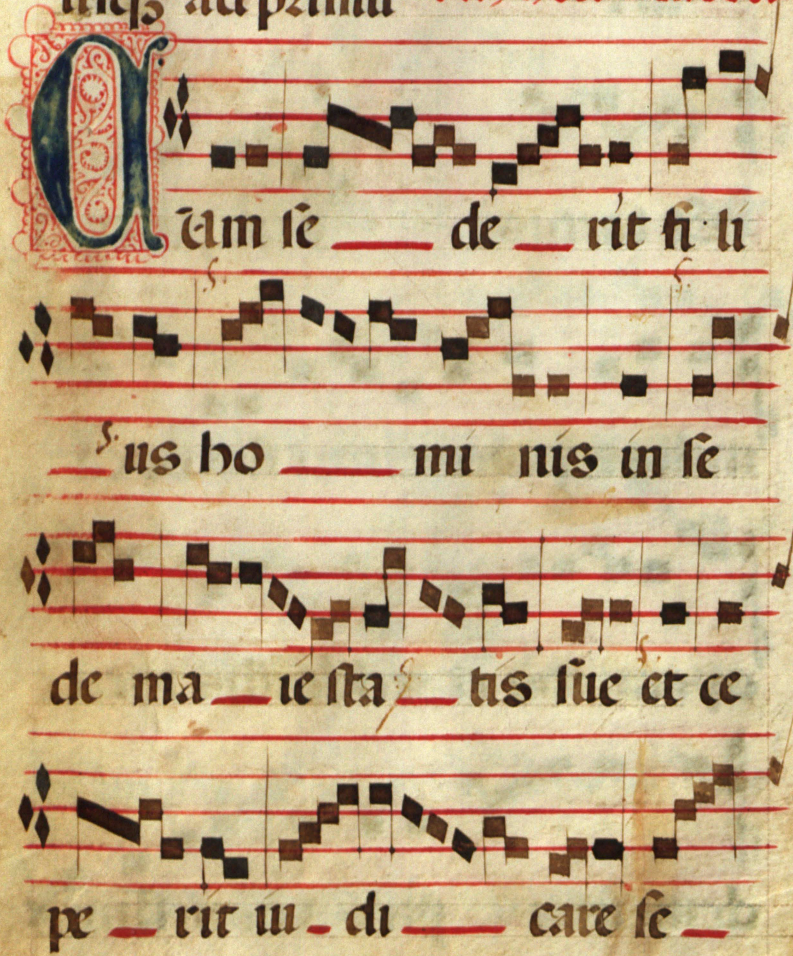 Cum se de rit fi li
us ho mi nis in se
de ma ie sta tis sue et ce
pe rit iu di care se